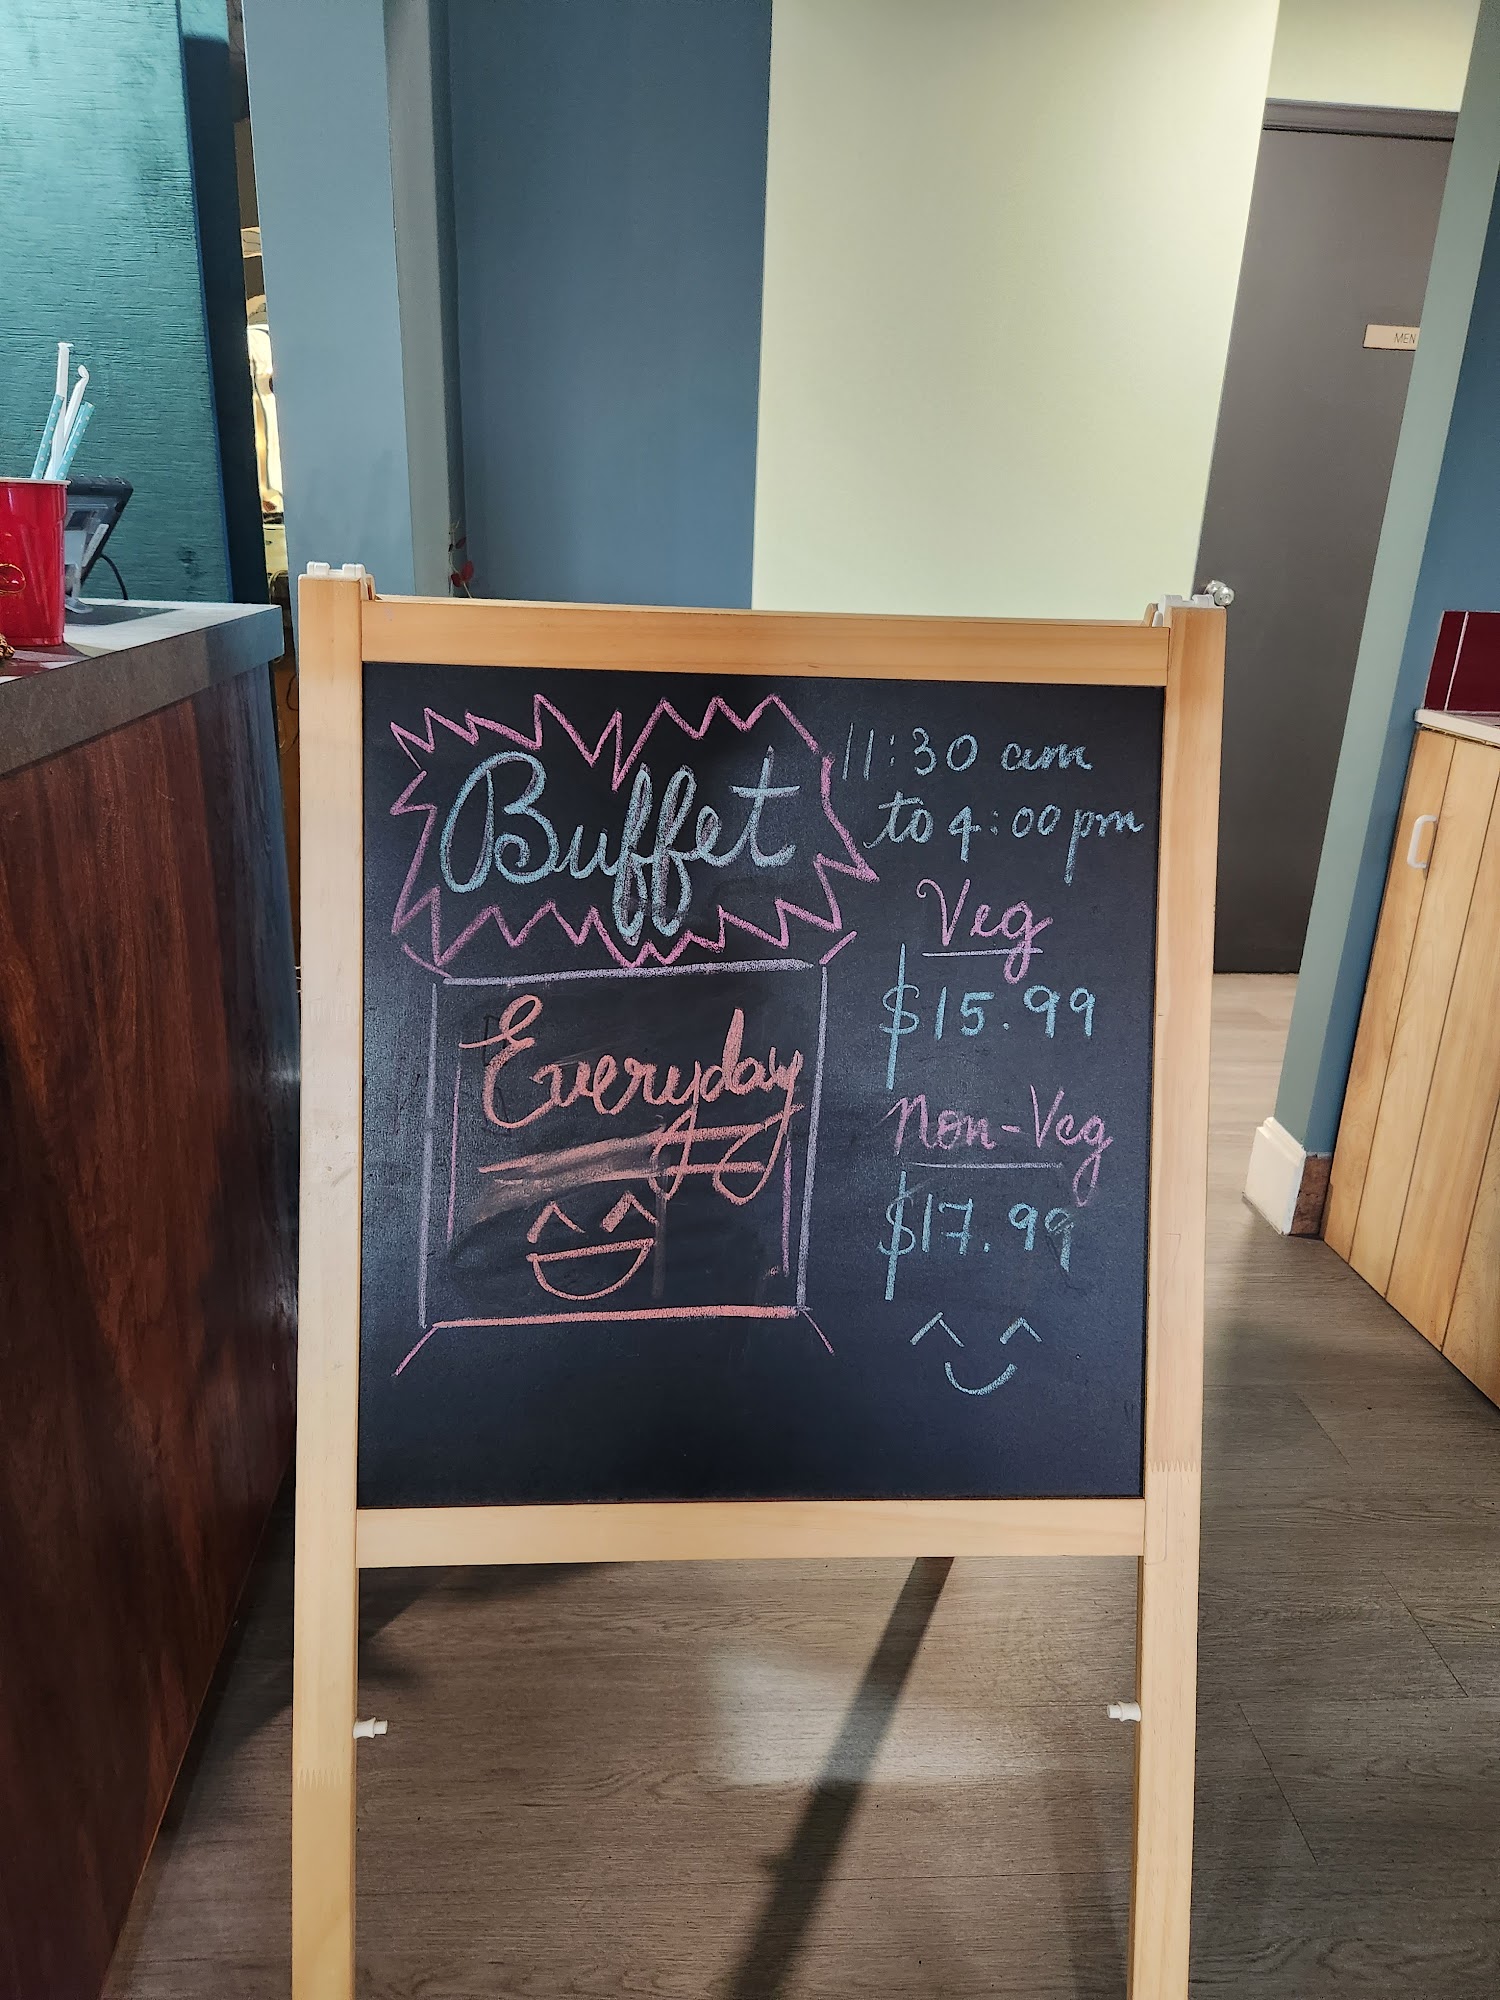 Buffet
Everyday
11:30 am
to 4:00 pm
Veg
$15.99
Non-Veg
$17.99
MEN